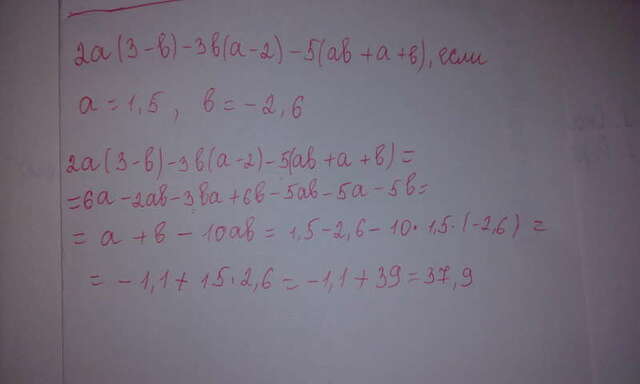 2a(3-в)-3в(a-2)-5(aв+a+в), если
a=1,5, в=-2,6
2a(3-в)-3в(a-2)-5(aв+a+в)=
=6a-2aв-3вa+6в-5aв-5a-5в=
=a+в-10aв=1,5-2,6-10·1,5·(-2,6)=
=-1,1+15·2,6=-1,1+39=37,9